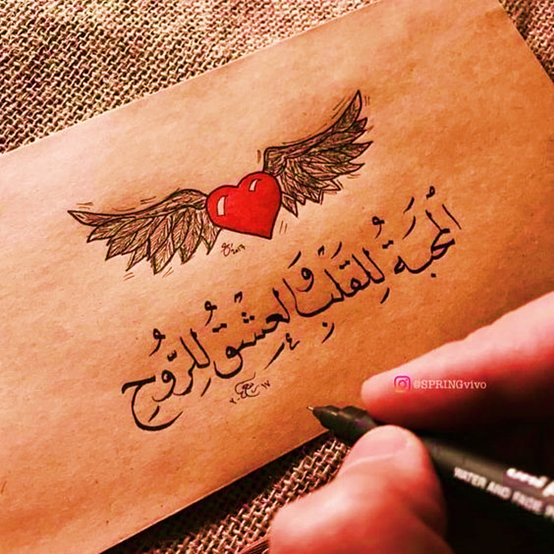 المحبة لِلقَلبِ وَالعِشقُ لِلرُّوُحِ
@SPRINGvivo
uni
WATER AND FADE